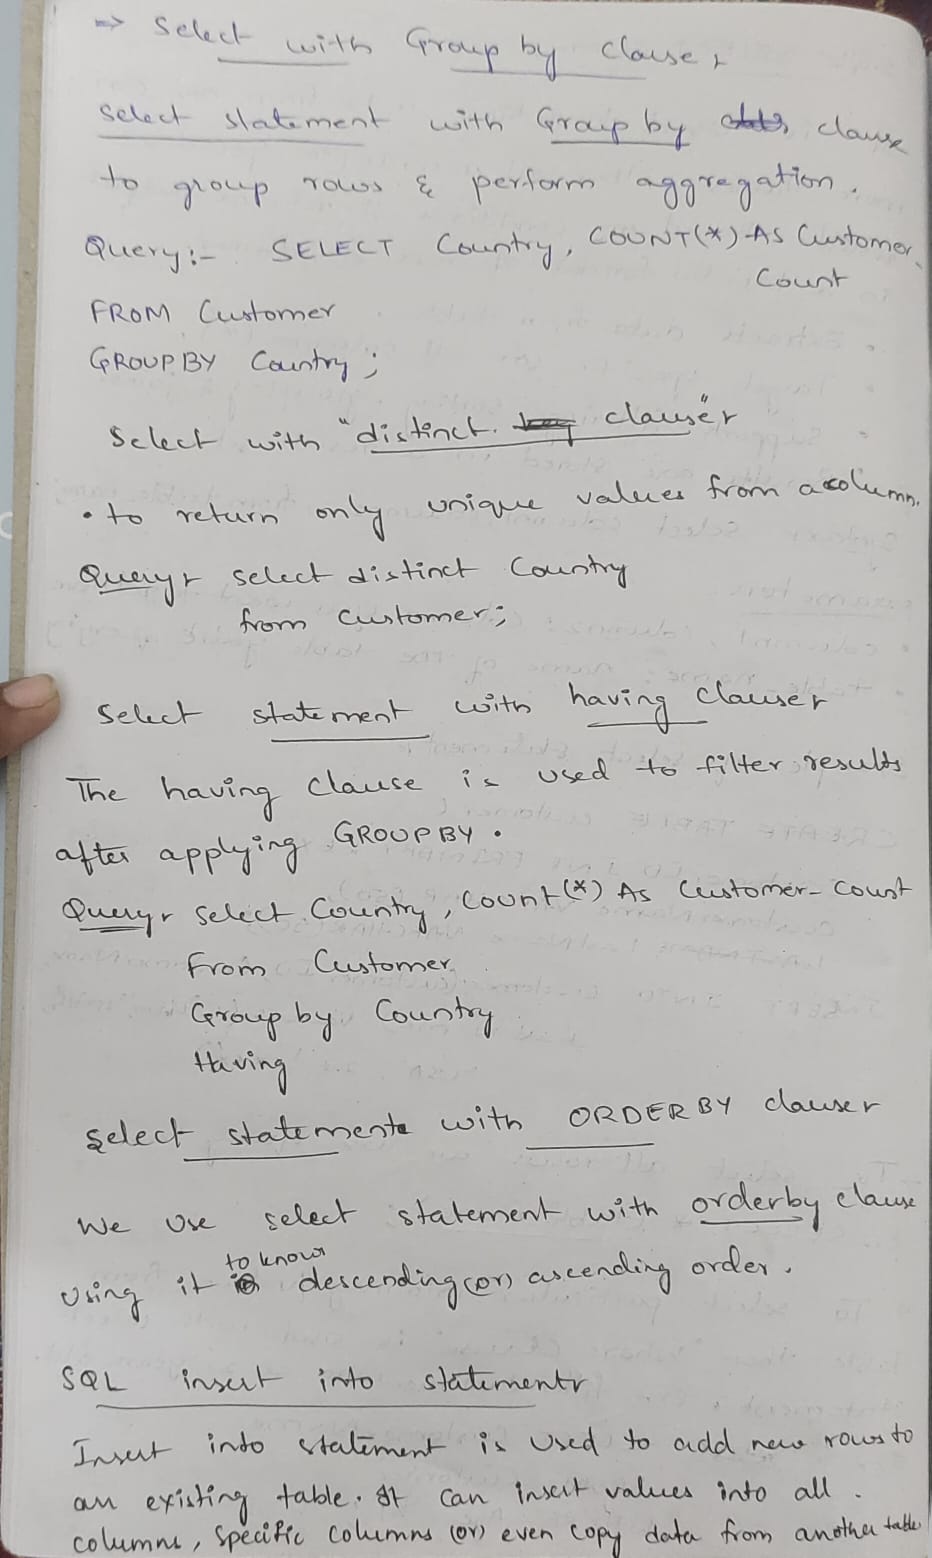 ⇒ Select with Group by clause :-
Select statement with Group by clause
to group rows & perform aggregation.
Query:- SELECT Country, COUNT(*) AS Customer_
Count
FROM Customer
GROUP BY Country;
Select with "distinct clause":-
• to return only unique values from a column.
Query:- select distinct Country
from customer;
Select statement with having clause:-
The having clause is used to filter results
after applying GROUP BY.
Query:- select Country, Count(*) As Customer_Count
From Customer
Group by Country
Having
select statement with ORDER BY clause:-
We use select statement with orderby clause
to know
using it descending (or) ascending order.
SQL insert into statement:-
Insert into statement is used to add new rows to
an existing table. It can insert values into all
columns, specific columns (or) even copy data from another table